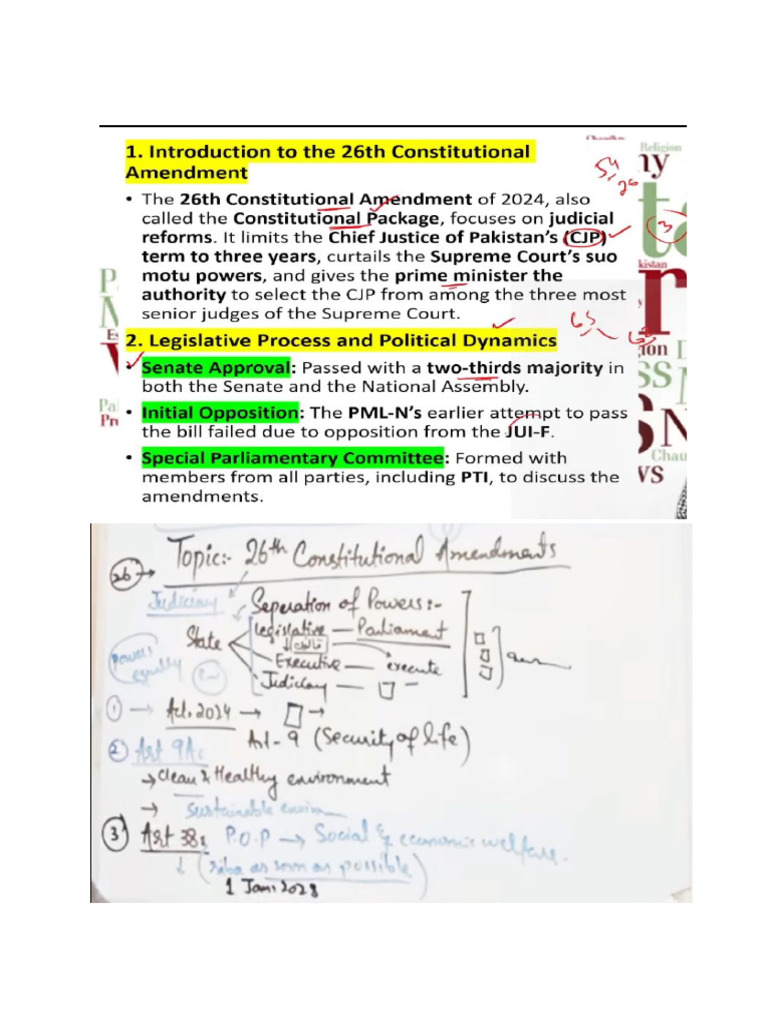 1. Introduction to the 26th Constitutional
Amendment
• The 26th Constitutional Amendment of 2024, also
called the Constitutional Package, focuses on judicial
reforms. It limits the Chief Justice of Pakistan's (CJP)
term to three years, curtails the Supreme Court's suo
motu powers, and gives the prime minister the
authority to select the CJP from among the three most
senior judges of the Supreme Court.
2. Legislative Process and Political Dynamics
• Senate Approval: Passed with a two-thirds majority in
both the Senate and the National Assembly.
• Initial Opposition: The PML-N's earlier attempt to pass
the bill failed due to opposition from the JUI-F.
• Special Parliamentary Committee: Formed with
members from all parties, including PTI, to discuss the
amendments.
Religion
3
65
Topic:- 26th Constitutional Amendments
26 →
Judiciary
Seperation of Powers:-
State
Legislative — Parliament
Executive — execute
Judiciary —
Powers
equally
① → Act, 2024 →
Art- 9 (Security of life)
② Art 9A:
→ Clean & Healthy environment
→ Sustainable
③ Art 38: P.O.P → Social & economic welfare.
↓ (riba as soon as possible)
1 Jan, 2028